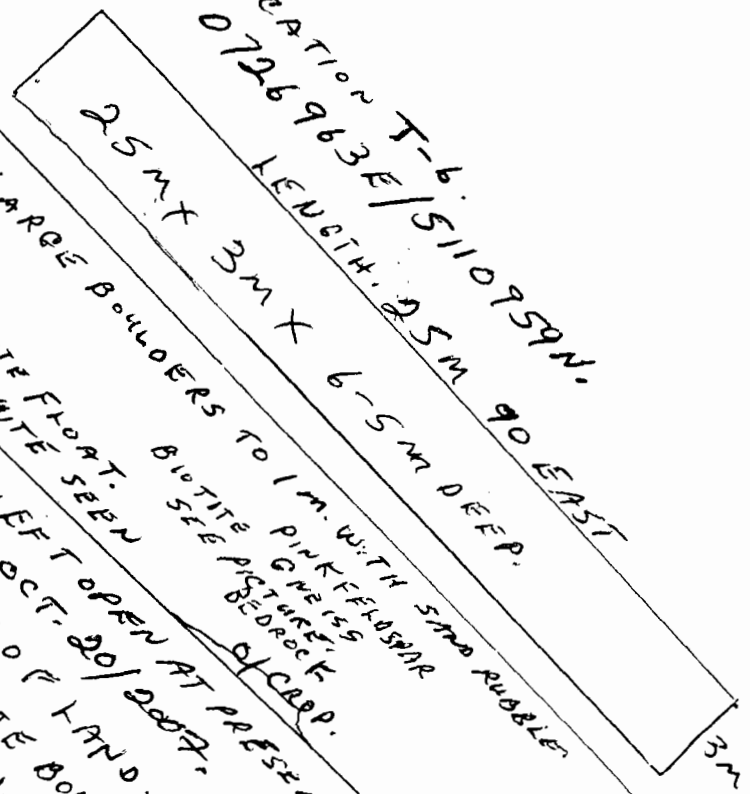 CATION T-6.
0726963E/5110959N.
LENGTH. 25M 90 EAST
25M X 3M X 6-5M DEEP.
3M
ARGE BOULDERS TO 1M. WITH SAND RUBBLE
BIOTITE PINK FELDSPAR
GNEISS
SEE PICTURE.
BEDROCK
O/CROP.
TE FLOAT.
ITE SEEN
EFT OPEN AT PRESE
OCT. 20/2007.
OF LAND.
TE BO